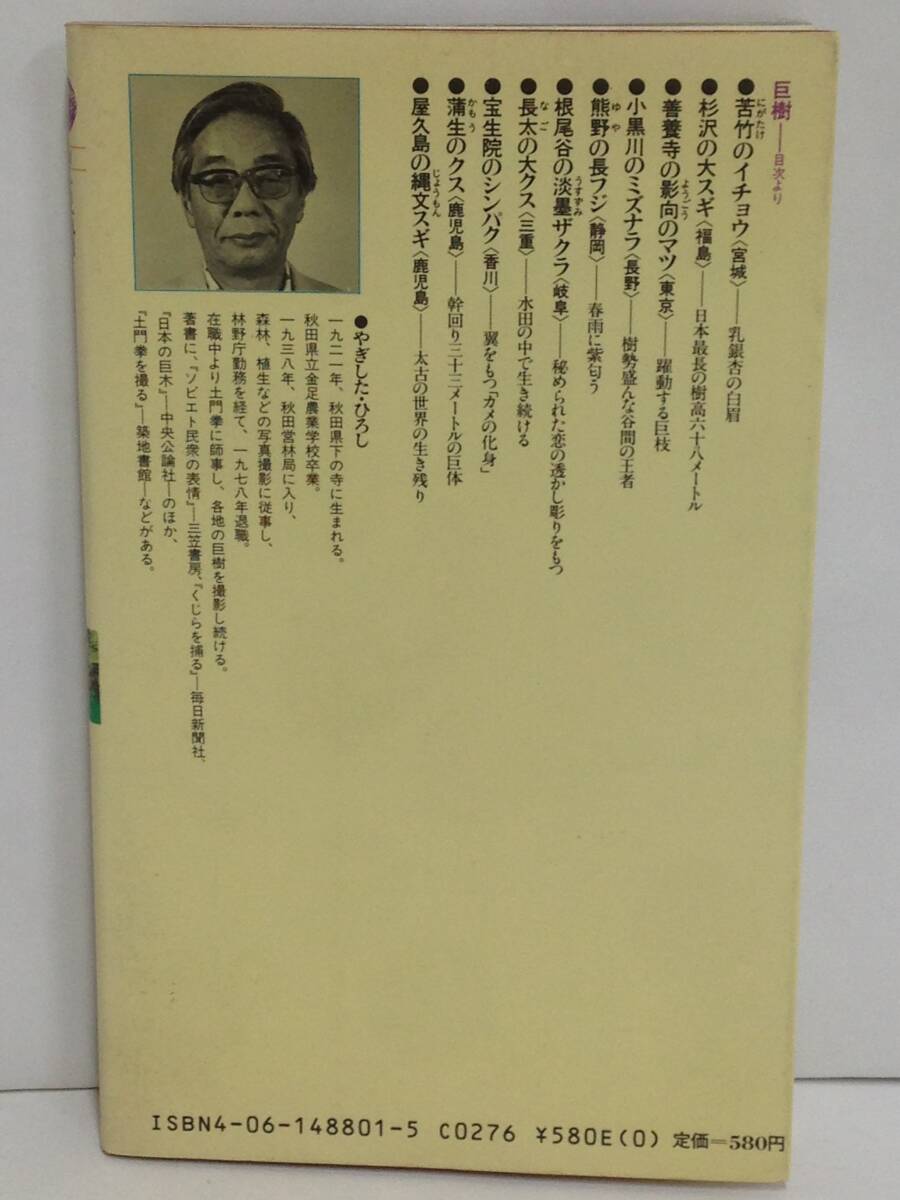 巨樹——目次より
●苦竹のイチョウ〈宮城〉——乳銀杏の白眉
にがたけ
●杉沢の大スギ〈福島〉——日本最長の樹高六十八メートル
●善養寺の影向のマツ〈東京〉——躍動する巨枝
ようごう
●小黒川のミズナラ〈長野〉——樹勢盛んな谷間の王者
●熊野の長フジ〈静岡〉——春雨に紫匂う
ゆや
●根尾谷の淡墨ザクラ〈岐阜〉——秘められた恋の透かし彫りをもつ
うすずみ
●長太の大クス〈三重〉——水田の中で生き続ける
なご
●宝生院のシンパク〈香川〉——翼をもつ「カメの化身」
●蒲生のクス〈鹿児島〉——幹回り三十三メートルの巨体
かもう
●屋久島の縄文スギ〈鹿児島〉——太古の世界の生き残り
じょうもん
●やぎした・ひろし
一九二一年、秋田県下の寺に生まれる。
秋田県立金足農業学校卒業。
一九三八年、秋田営林局に入り、
森林、植生などの写真撮影に従事し、
林野庁勤務を経て、一九七八年退職。
在職中より土門拳に師事し、各地の巨樹を撮影し続ける。
著書に、『ソビエト民衆の表情』—三笠書房、『くじらを捕る』—毎日新聞社、
『日本の巨木』—中央公論社—のほか、
『土門拳を撮る』—築地書館—などがある。
ISBN4-06-148801-5 C0276 ¥580E(0) 定価=580円